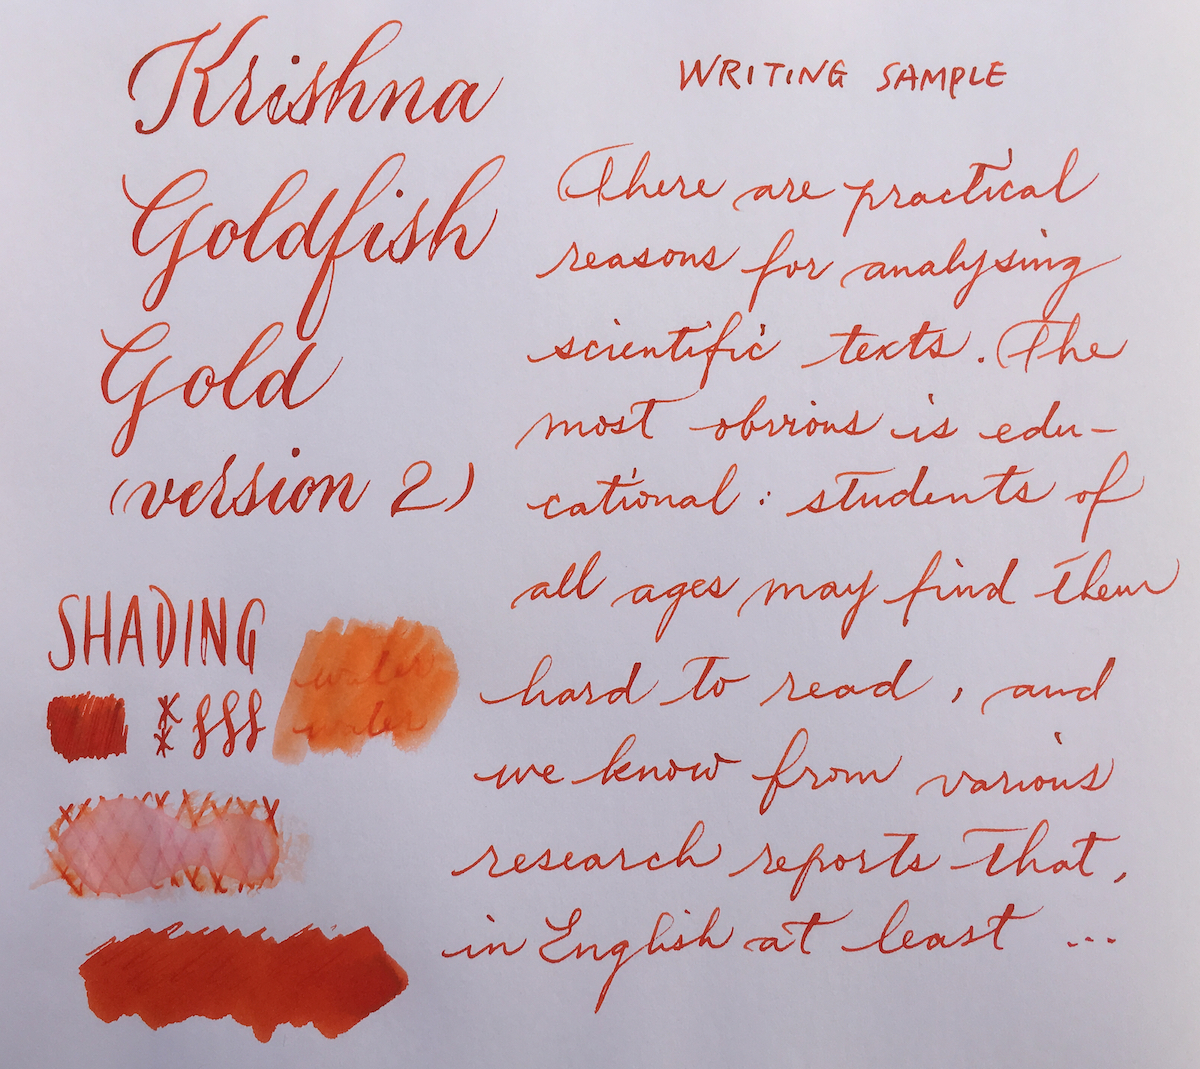 Krishna
Goldfish
Gold
(version 2)
SHADING
water
water
WRITING SAMPLE
There are practical
reasons for analysing
scientific texts. The
most obvious is edu-
cational: students of
all ages may find them
hard to read, and
we know from various
research reports that,
in English at least ...